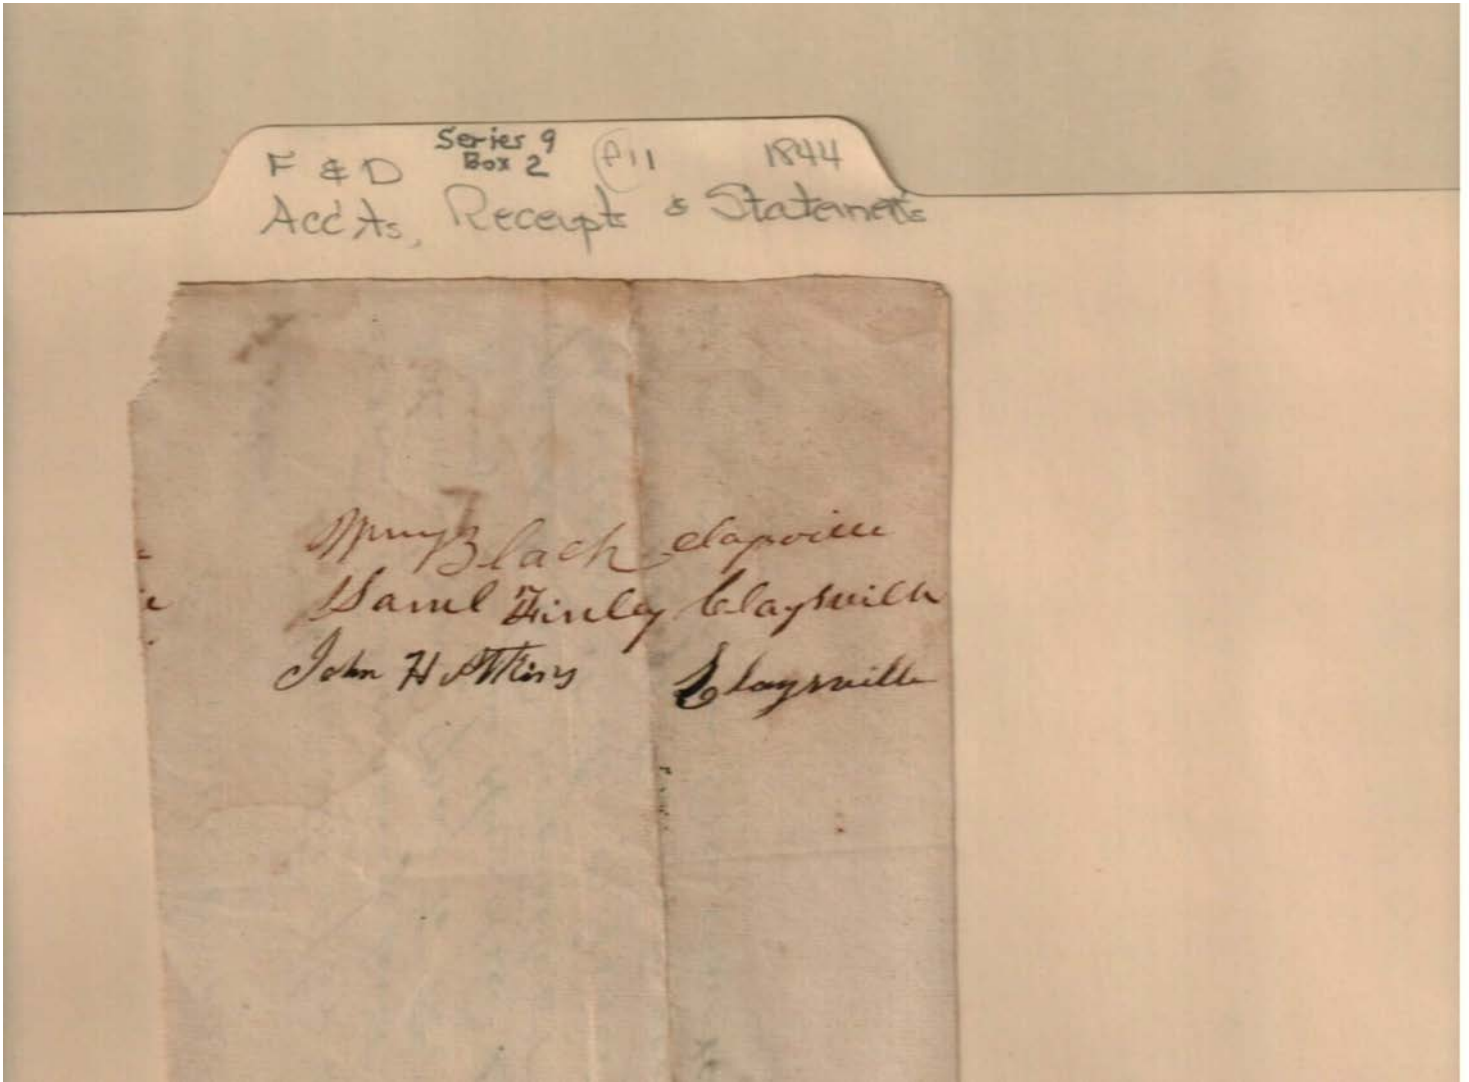 Series 9
F & D Box 2 A11 1844
Accts, Receipts & Statements
Black
Saml Finley Claysville
John H Atkins Claysville